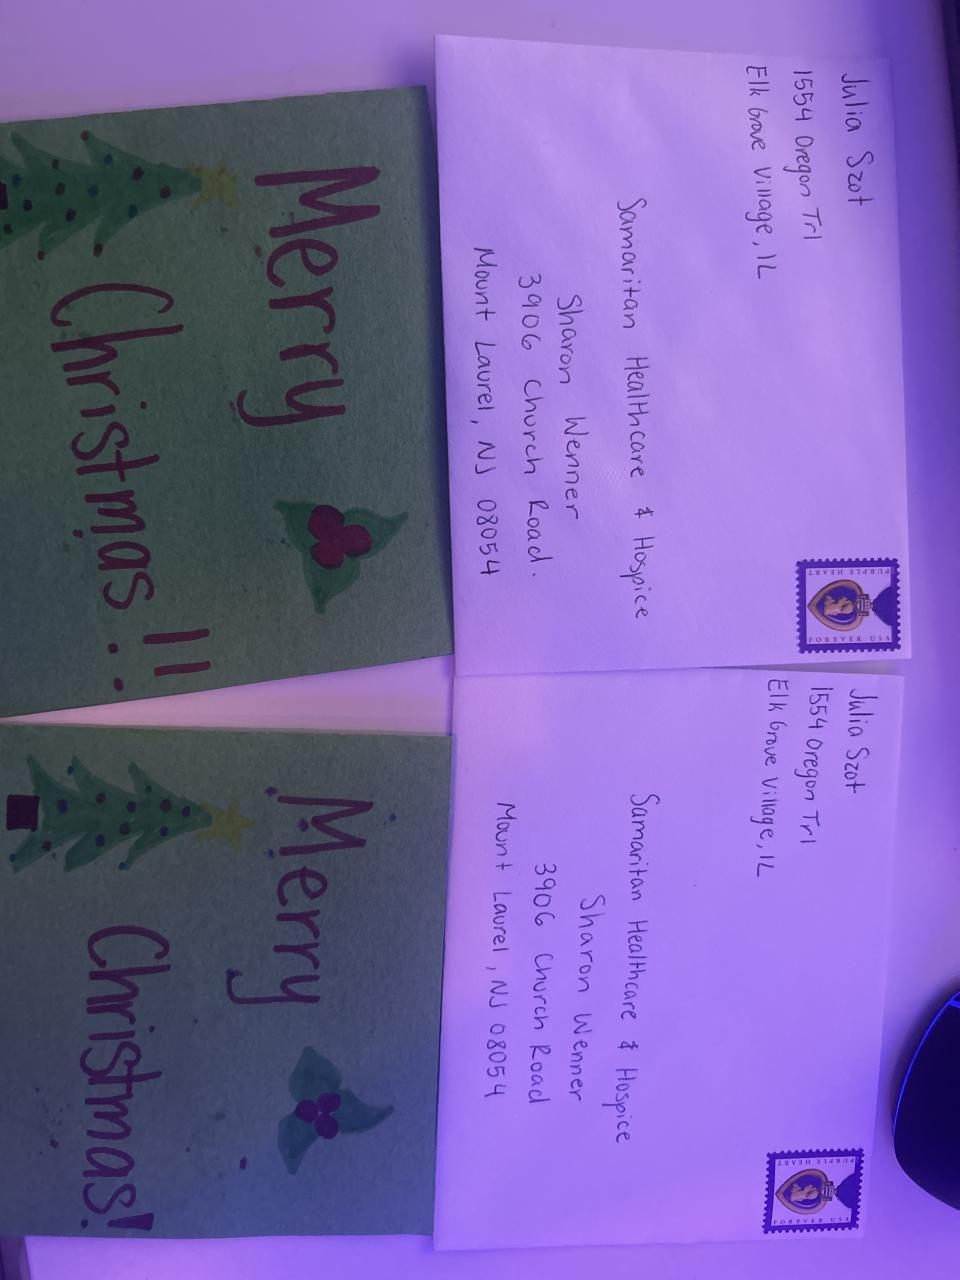 Julia Szot
1554 Oregon Trl
Elk Grove Village, IL
Samaritan Healthcare & Hospice
Sharon Wenner
3906 Church Road.
Mount Laurel, NJ 08054
PURPLE HEART
FOREVER USA
Merry
Christmas!!
Julia Szot
1554 Oregon Trl
Elk Grove Village, IL
Samaritan Healthcare & Hospice
Sharon Wenner
3906 Church Road
Mount Laurel, NJ 08054
PURPLE HEART
FOREVER USA
Merry
Christmas!